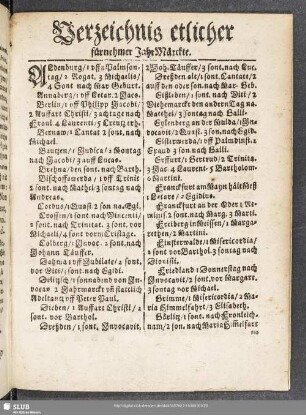 Verzeichnis etlicher
fürnehmer JahrMärckte.
ALdenburg / 1 uff Palmson-
tag / 2 Rogat. 3 Michaelis /
4 Sont. nach Mar. Geburt.
Annaberg /
Berlin / 1 uff Philipp Jacobi /
2 Auffart Christi / 3 achtage nach
Fronl. 4 Laurentj / 5 Creutz erh.
Bernaw / Cantat 2 sont. nach
Michael.
Bautzen / Judica / 2 Montag
nach Jacobi / 3 auff Lucas.
Brehna / den sont. nach Barth.
Bischoffswerda / 1 uff Trinit
2 sont. nach Mathei / 3 sontag nach
Andreas.
Cotbus / 2 son na. Egi.
Crossen / sont nach Vincenti /
2 sont. nach Trinitat. 3 sont. vor
Michaeli / 4 vorm Cristage.
Colberg / Invoc. 2 sont. nach
Johann Täuffer.
Dahna 1 uff Jubilate / 2 sont.
vor Viti / sont. nach Egidi.
Delitzsch / 1 sonnabend von In-
vocav 2 Jahrmarckt uff stattlich
Adeltanz uff Petri Paul.
Dieben / 1 Auffart Christi /
sont. vor Barthol.
Dreßden / 1 sont. Invocavit,
2 Joh. Täuffer / 3 sont. nach Luc.
Dreßden alt / 1 sont. Cantate / 2
auff den oder son. nach Mar. Geb.
Eißleben / 1 sont. nach Viti / 2
Viehemarckt den andern Tag na.
Mathei / 3 sontag nach Galli.
Eylenberg an der Mulda / In-
vocavit / 2 3 son. nach Egid.
Elsterwerda / uff Palmdinst. 2
3 son. nach Galli.
Erffurt / Gertrud / 2 Trinita.
3 Jac 4 Laurent / 5 Bartholom-
6 Martini.
Franckfurt am Mayn hält Meß
1 Letare / 2 Egidius.
Franckfurt an der Oder 1 Re-
minis. 2 sont. nach Marg. 3 Marti.
Freiberg in Meissen / 2 Marga-
rethen / 2 Martini.
Finsterwalde / 1 Misericordia /
2 sont vor Barthol. 3 sontag nach
Dionisii.
Friedland 1 Donnerstag nach
Invocavit / 2 sont. vor Margare.
3 sontag vor Michael.
Grimme / 1 Misericordia / 2 Ma-
ria Himmelfahrt / 3 Elisabeth.
Görlitz / 1 sont. nach Fronleich-
nam / 2 son. nach Maria Himelfart
SLUB